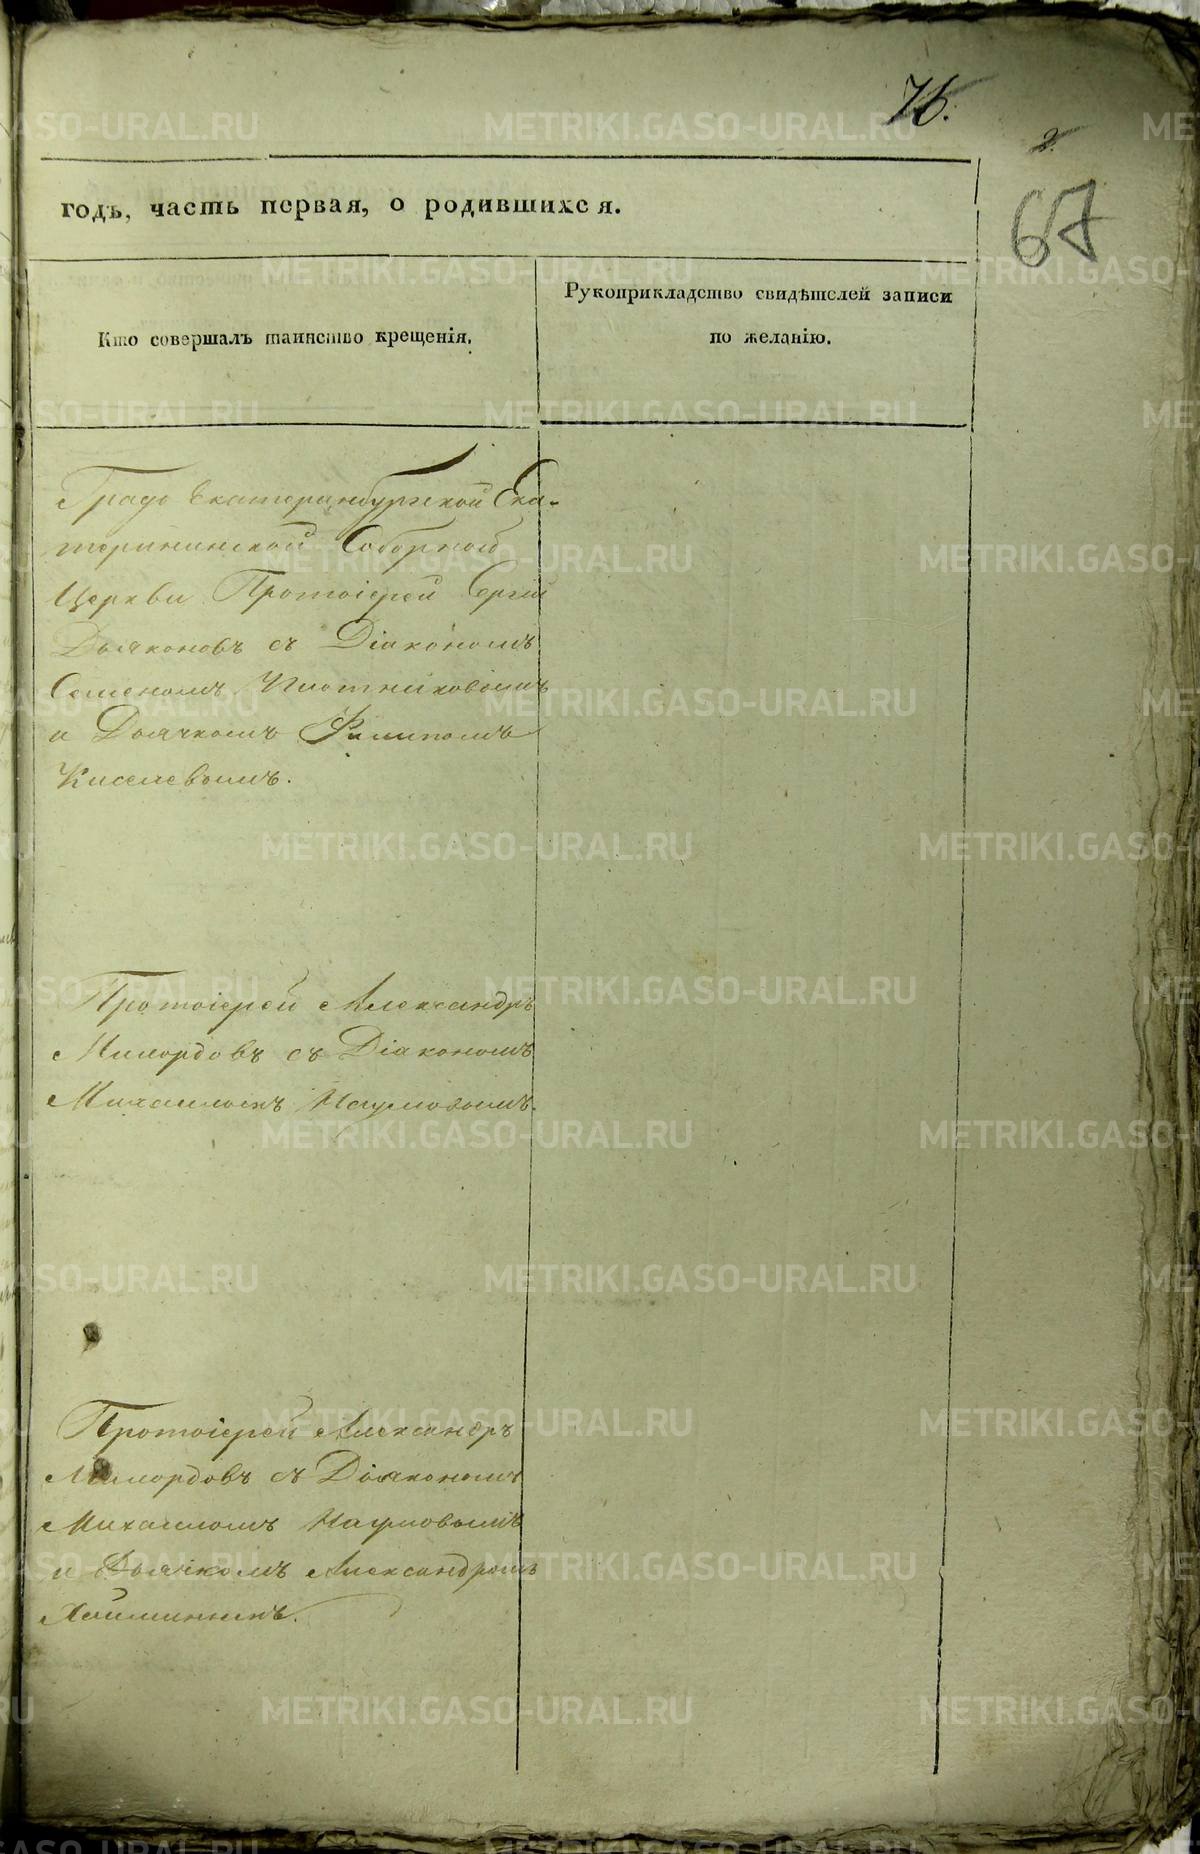 76.
2.
67
годъ, часть первая, о родившихся.
Кто совершалъ таинство крещенія.
Рукоприкладство свидѣтелей записи
по желанію.
Градо Екатеринбургской Ека-
терининской Соборной
Церкви Протоіерей Сергій
Дьяконовъ съ Діакономъ
Семеномъ Плотниковымъ
и Дьячкомъ Филипомъ
Киселевымъ.
Протоіерей Александръ
Милордовъ съ Діакономъ
Михаиломъ Наумовымъ.
Протоіерей Александръ
Милордовъ съ Діакономъ
Михаиломъ Наумовымъ
и Дьячкомъ Александромъ
METRIKI.GASO-URAL.RU